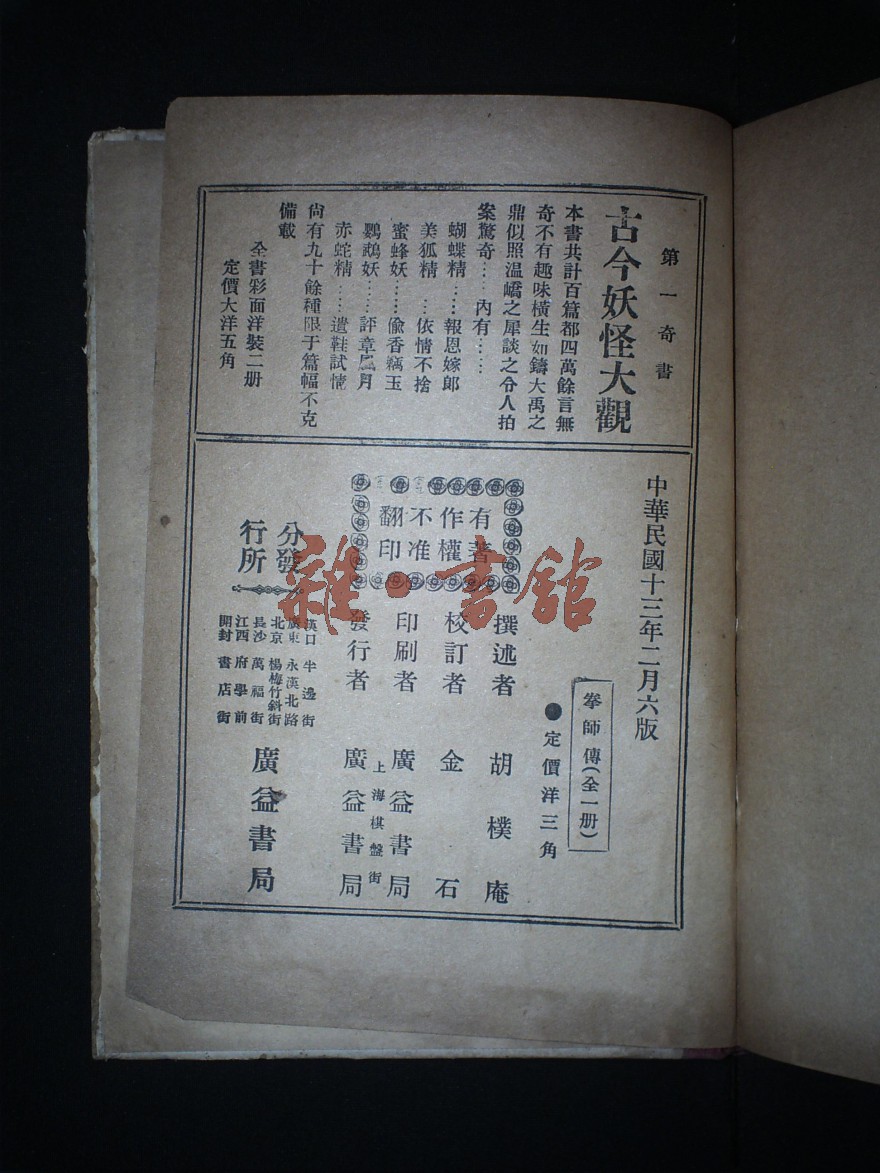 第一奇書
古今妖怪大觀
本書共計百篇都四萬餘言無
奇不有趣味橫生如鑄大禹之
鼎似照温嶠之犀談之令人拍
案驚奇……內有……
蝴蝶精……報恩嫁郞
美狐精…依情不捨
蜜蜂妖……偸香竊玉
鸚鵡妖……評章風月
赤蛇精……遣鞋試情
尙有九十餘種限于篇幅不克
備載
全書彩面洋裝二册
定價大洋五角
中華民國十三年二月六版
拳師傳(全一册)
●定價洋三角
有著
作權
不准
翻印
撰述者 胡樸庵
校訂者 金石
印刷者 廣益書局
上海棋盤街
發行者 廣益書局
分發
行所
漢口 半邊街
廣東 永漢北路
北京 楊梅竹斜街
長沙 萬福街
江西 府學前
開封 書店街
廣益書局
雜·書館